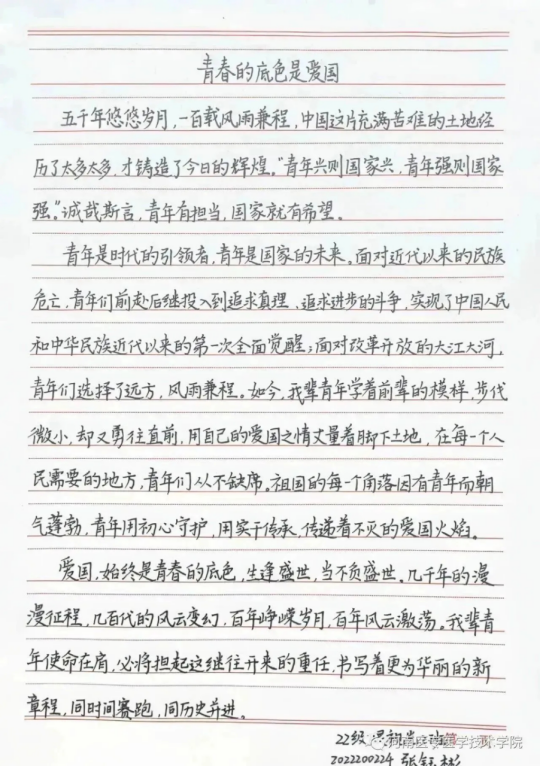 青春的底色是爱国
五千年悠悠岁月，一百载风雨兼程，中国这片充满苦难的土地经
历了太多太多，才铸造了今日的辉煌。“青年兴则国家兴，青年强则国家
强。”诚哉斯言，青年有担当，国家就有希望。
青年是时代的引领者，青年是国家的未来。面对近代以来的民族
危亡，青年们前赴后继投入到追求真理、追求进步的斗争，实现了中国人民
和中华民族近代以来的第一次全面觉醒；面对改革开放的大江大河，
青年们选择了远方，风雨兼程。如今，我辈青年学着前辈的模样，步伐
微小，却又勇往直前，用自己的爱国之情丈量着脚下土地，在每一个人
民需要的地方，青年们从不缺席。祖国的每一个角落因有青年而朝
气蓬勃，青年用初心守护，用实干传承，传递着不灭的爱国火焰。
爱国，始终是青春的底色，生逢盛世，当不负盛世。几千年的漫
漫征程，几百代的风云变幻，百年峥嵘岁月，百年风云激荡。我辈青
年使命在肩，必将担起这继往开来的重任，书写着更为华丽的新
章程，同时间赛跑，同历史并进。
22级
医学技术学院
2022200224 张钰彬